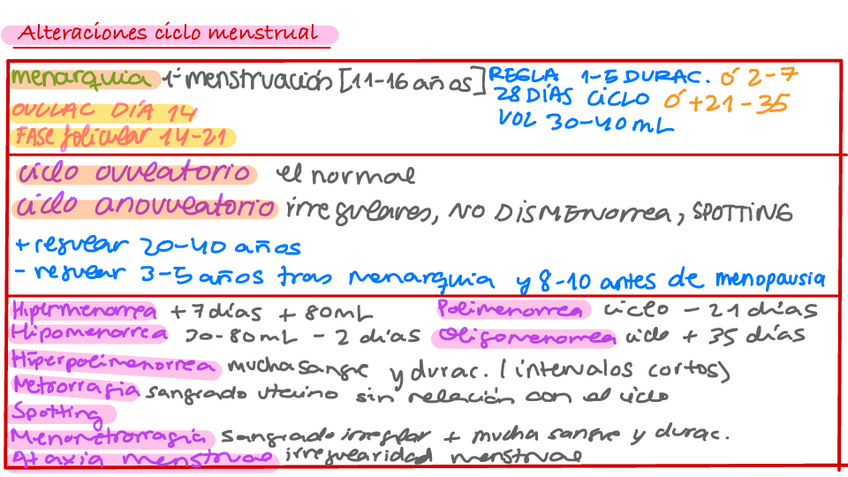 Alteraciones ciclo menstrual
menarquia 1ª menstruación [11-16 años]
REGLA 1-5 DURAC. ó 2-7
28 DÍAS CICLO ó +21-35
VOL 30-40 mL
OVULAC DÍA 14
FASE folicular 14-21
ciclo ovulatorio el normal
ciclo anovulatorio irregulares, NO DISMENORREA, SPOTTING
+ regular 20-40 años
- regular 3-5 años tras menarquia y 8-10 antes de menopausia
Hipermenorrea +7 días + 80mL
Polimenorrea ciclo - 21 días
Hipomenorrea 30-80mL - 2 días
Oligomenorrea ciclo + 35 días
Hiperpolimenorrea mucha sangre y durac. (intervalos cortos)
Metrorragia sangrado uterino sin relación con el ciclo
Spotting
Menometrorragia sangrado irregular + mucha sangre y durac.
Ataxia menstrual irregularidad menstrual